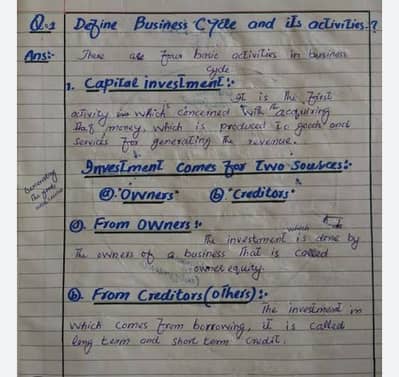 Q.1 Define Business Cycle and its activities.?
Ans:- There are four basic activities in business
cycle
1. Capital investment:-
It is the first
activity in which concerned with acquiring
that money, which is produced to goods and
services for generating the revenue.
Investment comes for two sources:-
ⓐ. "Owners" ⓑ "Creditors"
ⓐ. From Owners:-
The investment which is done by
the owners of a business that is called
owner equity.
ⓑ. From Creditors (others):-
The investment in
which comes from borrowing, it is called
long term and short term credit.